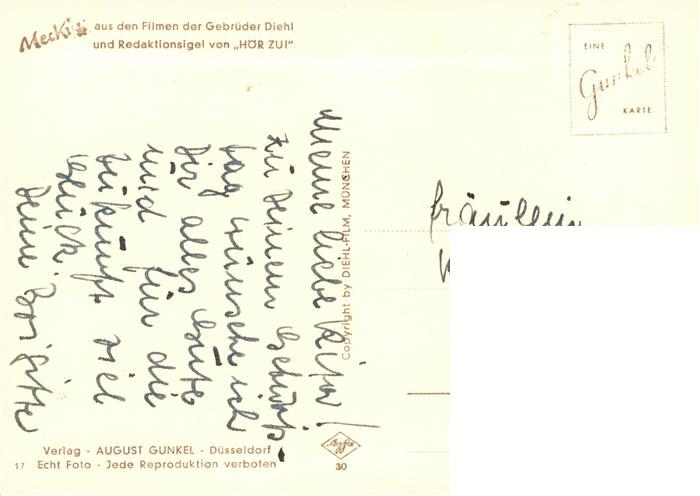 Mecki aus den Filmen der Gebrüder Diehl
und Redaktionsigel von „HÖR ZU!"
EINE
Gunkel
KARTE
Meine liebe Rita!
Zu Deinem Geburts-
tag wünsche ich
Dir alles Gute
und für die
Zukunft viel
Glück.
Deine Brigitte
Copyright by DIEHL-FILM, MÜNCHEN
Fräulein
Verlag - AUGUST GUNKEL - Düsseldorf
17 Echt Foto - Jede Reproduktion verboten
Agfa
30